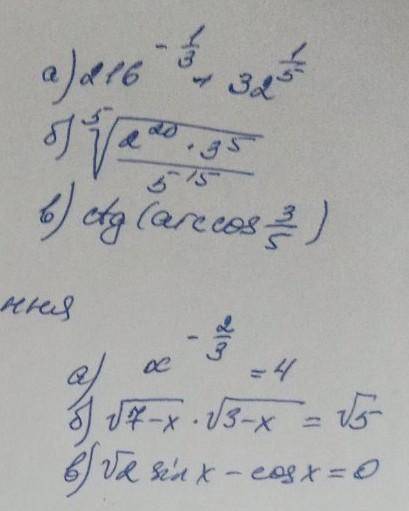 а) 216^{-\frac{1}{3}} + 32^{\frac{1}{5}}
б) \sqrt[5]{\frac{2^{20} \cdot 3^{5}}{5^{15}}}
в) ctg (arccos \frac{3}{5})
ння
а) x^{-\frac{2}{3}} = 4
б) \sqrt{7-x} \cdot \sqrt{3-x} = \sqrt{5}
в) \sqrt{2} sin x - cos x = 0